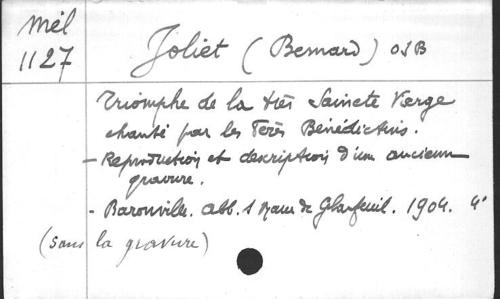 Mél
1127
Joliet (Bernard) OSB
Triomphe de la très Saincte Vierge
chanté par les Pères Bénédictins.
- Reproduction et description d'une ancienne
gravure.
- Baronville. Abb. S Maur de Glanfeuil. 1904. 4°
(sans la gravure)